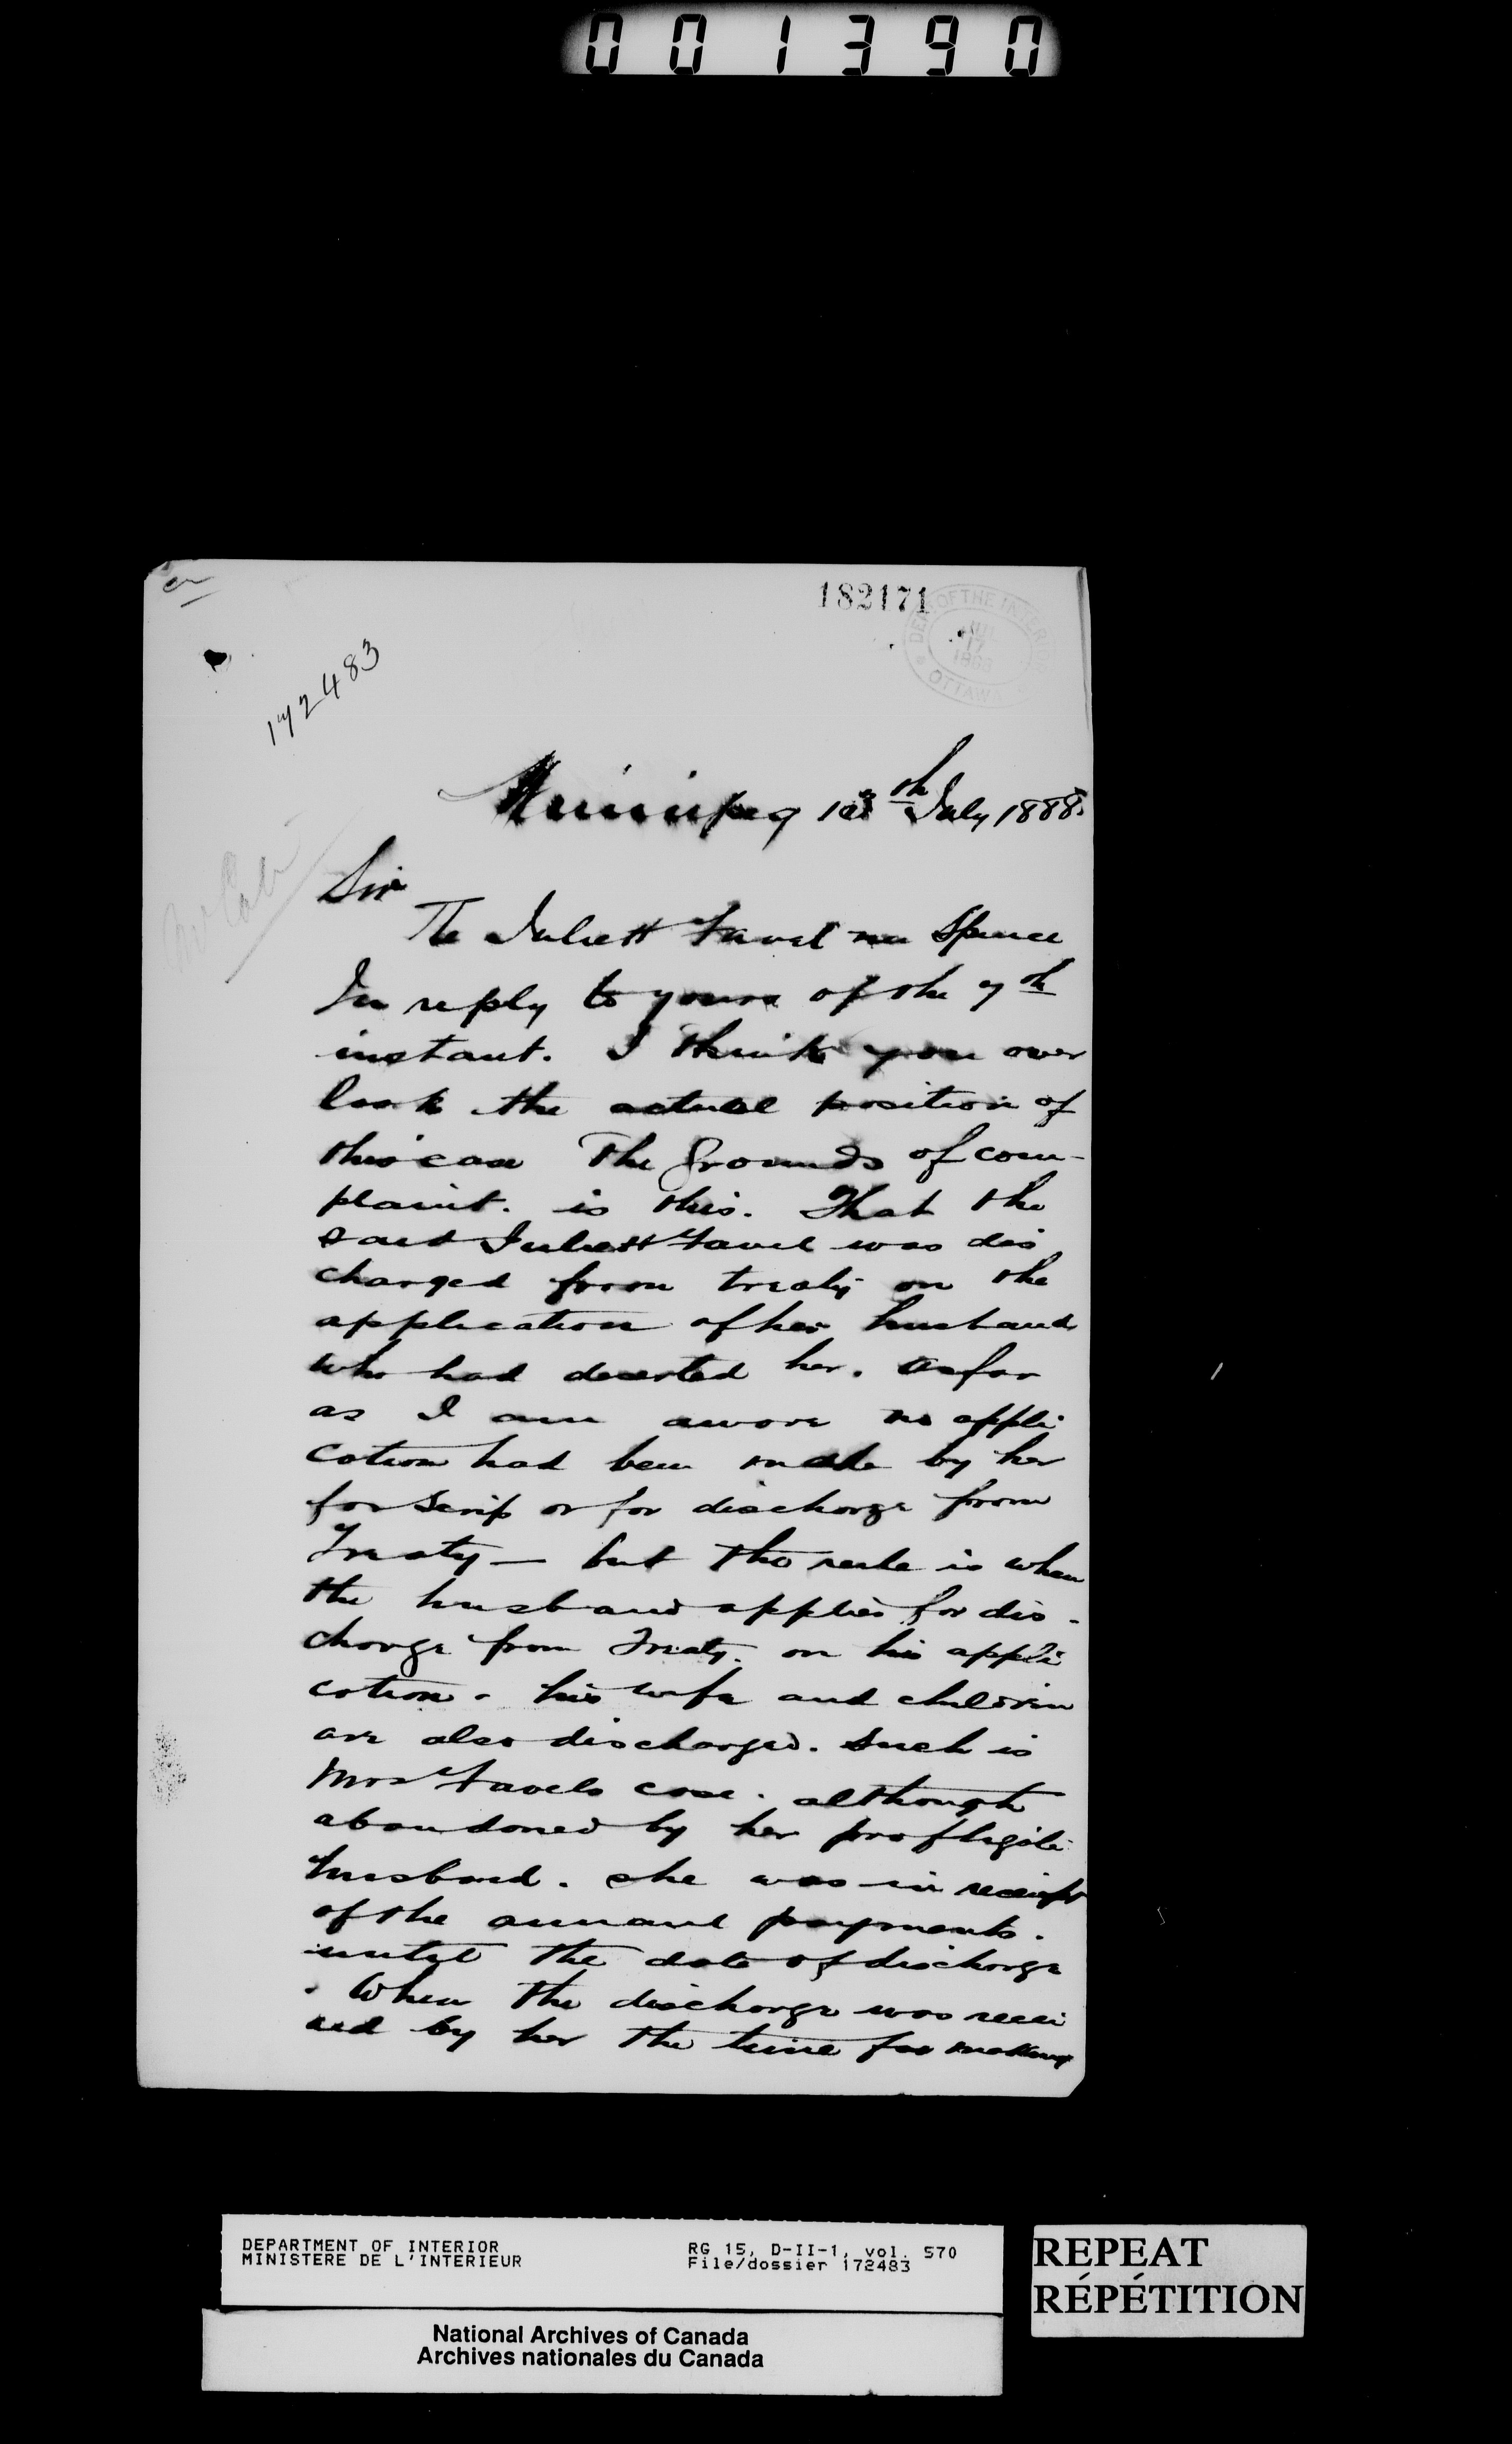 001390
182171
DEPT OF THE INTERIOR
JUL
17
1888
OTTAWA
172483
Winnipeg 13th July 1888
Sir
Re Juliett Favel nee Spence
In reply to yours of the 7th
instant. I think you over
look the actual position of
this case The grounds of com-
plaint. is this. That the
said Juliett Favel was dis
charged from treaty on the
application of her husband
who had deserted her. as far
as I am aware no appli
cation had been made by her
for Scrip or for discharge from
Treaty — but the rule is when
the husband applies for dis-
charge from Treaty. on his appli
cation. his wife and children
are also discharged. Such is
Mrs Favels case. although
abandoned by her profligate
husband. she was in receipt
of the annual payments.
until the date of discharge
. When the discharge was recei
ved by her the time for making
DEPARTMENT OF INTERIOR
MINISTERE DE L'INTERIEUR
RG 15, D-II-1, vol. 570
File/dossier 172483
REPEAT
RÉPÉTITION
National Archives of Canada
Archives nationales du Canada